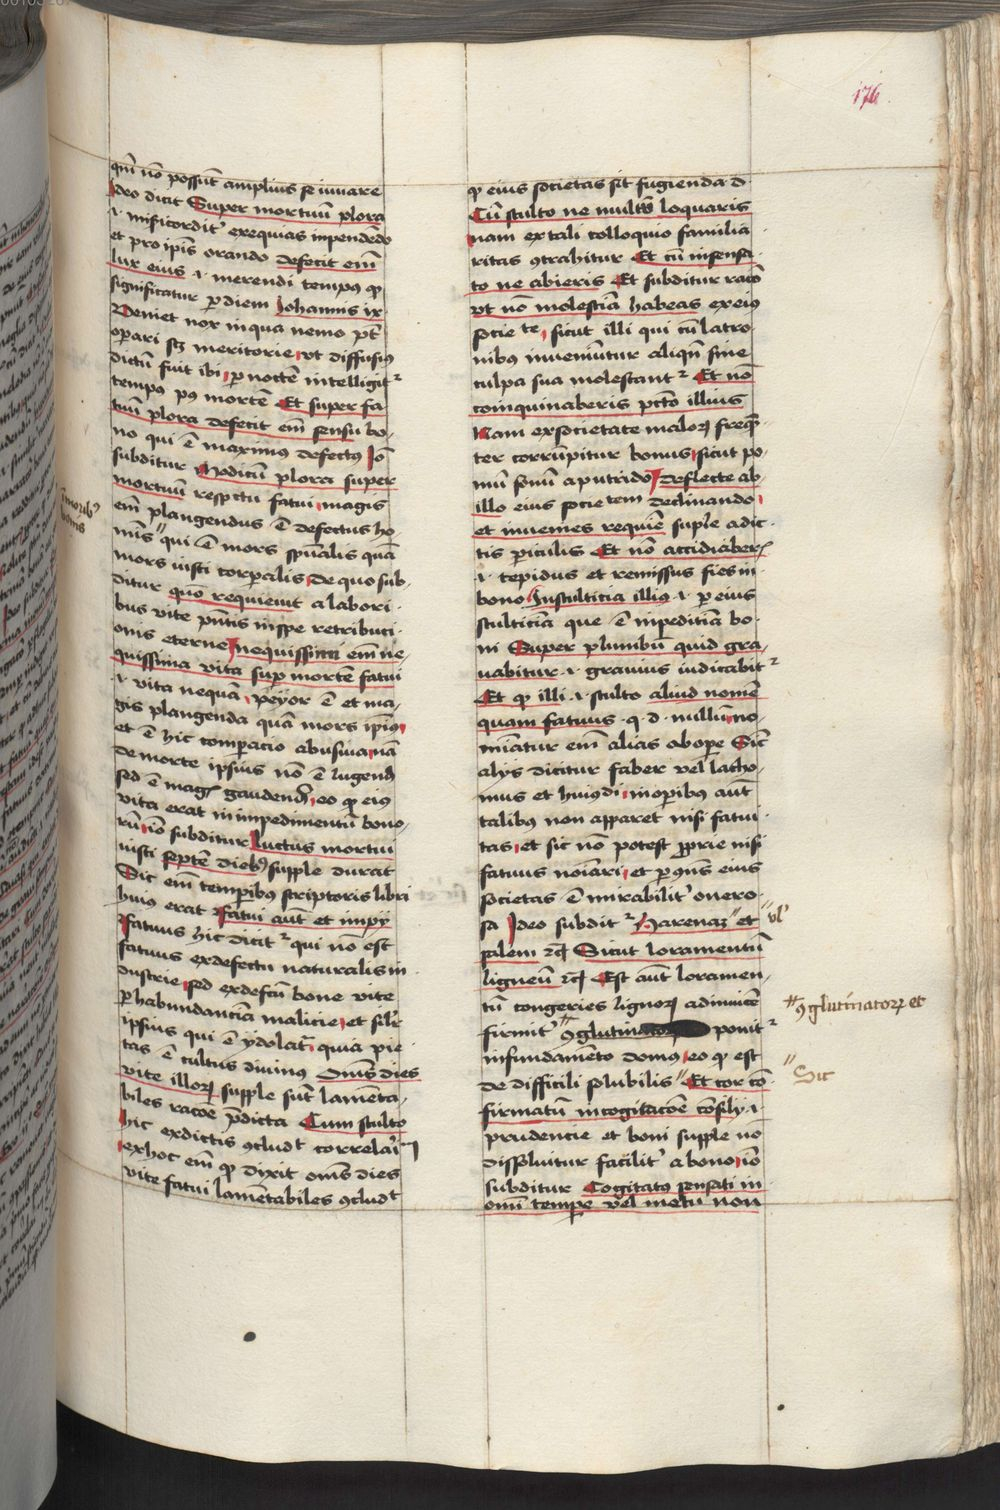 176
qm̄ nō possūt amplius se iuuare
Ideo dicit Super mortuū plora
.i. misericordit͛ exequias inpendēdo
et pro ipīs orando defecit em̄
lux eius .i. merendi tempꝰ qꝫ
significatur ꝑ diem Johannis ix
Veniet nox in qua nemo pt̄
oꝑari scꝫ meritorie vt diffusiꝰ
dictū fuit ibi ꝑ noctē intelligit͛
tempꝰ pꝰ mortē Et super fa
tuū plora defecit em̄ sensu bo
no qui ē maximus defectꝰ Iō
subditur Modicū plora super
mortuū respctu fatui magis
em̄ plangendus ē defectus ho
mīs qui ē mors spūalis quā
mors iusti corꝑalis De quo sub
ditur qm̄ requieuit a labori
bus vite pn̄tis in spe retributi
onis eterne nequissimi em̄ ne
quissima vita suꝑ mortē fatui
.i. vita nequā peyor ē et ma
gis plangenda quā mors ipīus
et ē hic comꝑacio abusiua nā
de morte ipsius nō ē lugendū
sed ē magꝭ gaudendū eo qꝫ eiꝰ
vita erat in inpedimentū bono
rū iō subditur Luctus mortui
iusti septē diebꝰ supple durat
Sic em̄ temꝑibus scriptoris libri
huiꝰ erat Fatui aūt et impy
Fatuus hic dicit͛ qui nō est
fatuus ex defectu naturalis in
dustrie sed ex defectū bone vite
ꝑ habundanciā malicie et silr͛
ipsius qui ē ydolat͛ quia pie
tas ē cultus diuinꝰ Om̄s dies
vite illorꝝ supple sūt lamēta
biles racōe p̄dicta Cum stulto
hic ex dictis ꝯcludͭ correlariū
ex hoc em̄ qꝫ dixit om̄s dies
vite fatui lamētabiles ꝯcludͭ
qꝫ eius societas sit fugienda d
Cū stulto ne multū loquaris
nam ex tali colloquio familia
ritas ꝯtrahitur Et cū insensa
to ne abieris Et subditur racō
vt nō molestiā habeas ex eiꝰ
socie te sicut illi qui cū latro
nibꝰ inueniūtur aliqn̄ sine
culpa sua molestant͛ Et nō
coinquinaberis pctō illius
Nam ex societate malorꝝ freqn̄
ter corrūpitur bonus sicut po
mū sanū a putrido Deflecte ab
illo eius socie tem declinando
et inuenies requiē suple a dic
tis ꝑiculis Et nō accidiaberꝭ
.i. tepidus et remissus fies in
bono In stulticia illiꝰ .i. ꝑ eius
stulticiā que ē inpeditiā bo
ni Super plumbū quid gra
uabitur .i. grauius iudicabit͛
Et qꝫ illi .i. stulto aliud nomē
quam fatuus .q.d. nullū no
miatur em̄ alias ab oꝑe Sic
alys dicitur faber vel latho
mus et huiꝰdi in oꝑibus aūt
talibus non apparet nisi fatui
tas et sic nō potest ꝓprie nisi
fatuus noīari et ꝑ ꝯn̄s eius
societas ē mirabilit͛ onero
sa Ideo subdit͛ Harenaꝫ et
salem ⁊cꝭ Sicut loramentū
ligneū ⁊cꝭ Est aūt loramen
tū congeries lignorꝝ adinuicē
firmit͛ ꝯglutinato ponit͛
in fundamēto domꝰ eo qꝫ est
de difficili solubilis Et cor cō
firmatū in cogitacōe cōsily .i.
prudencie et boni supple nō
dissoluitur facilit͛ a bono iō
subditur Cogitatꝰ sensati in
om̄i tempe vel metu non
vl'
ꝯglutinatorꝝ et
Sic